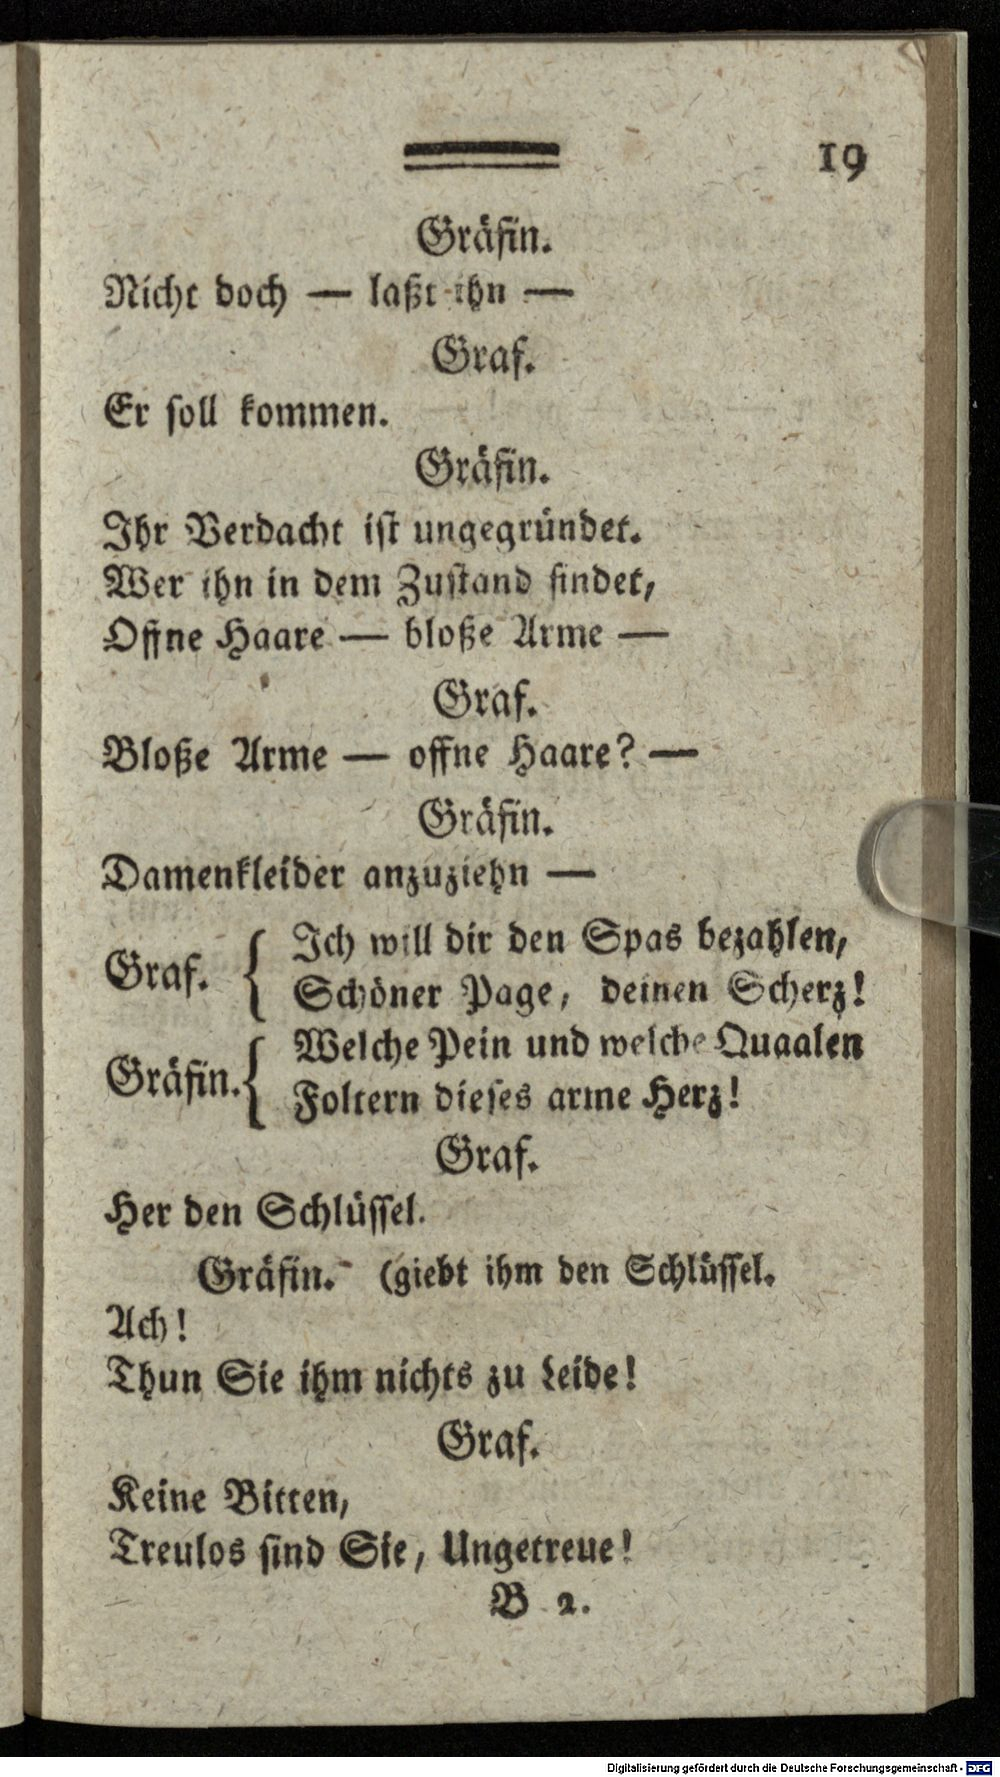 19
Gräfin.
Nicht doch — laßt ihn —
Graf.
Er soll kommen.
Gräfin.
Ihr Verdacht ist ungegründet.
Wer ihn in dem Zustand findet,
Offne Haare — bloße Arme —
Graf.
Bloße Arme — offne Haare? —
Gräfin.
Damenkleider anzuziehn —
Graf. { Ich will dir den Spas bezahlen,
Schöner Page, deinen Scherz!
Gräfin. { Welche Pein und welche Quaalen
Foltern dieses arme Herz!
Graf.
Her den Schlüssel.
Gräfin. (giebt ihm den Schlüssel.
Ach!
Thun Sie ihm nichts zu Leide!
Graf.
Keine Bitten,
Treulos sind Sie, Ungetreue!
B 2.
Digitalisierung gefördert durch die Deutsche Forschungsgemeinschaft - DFG